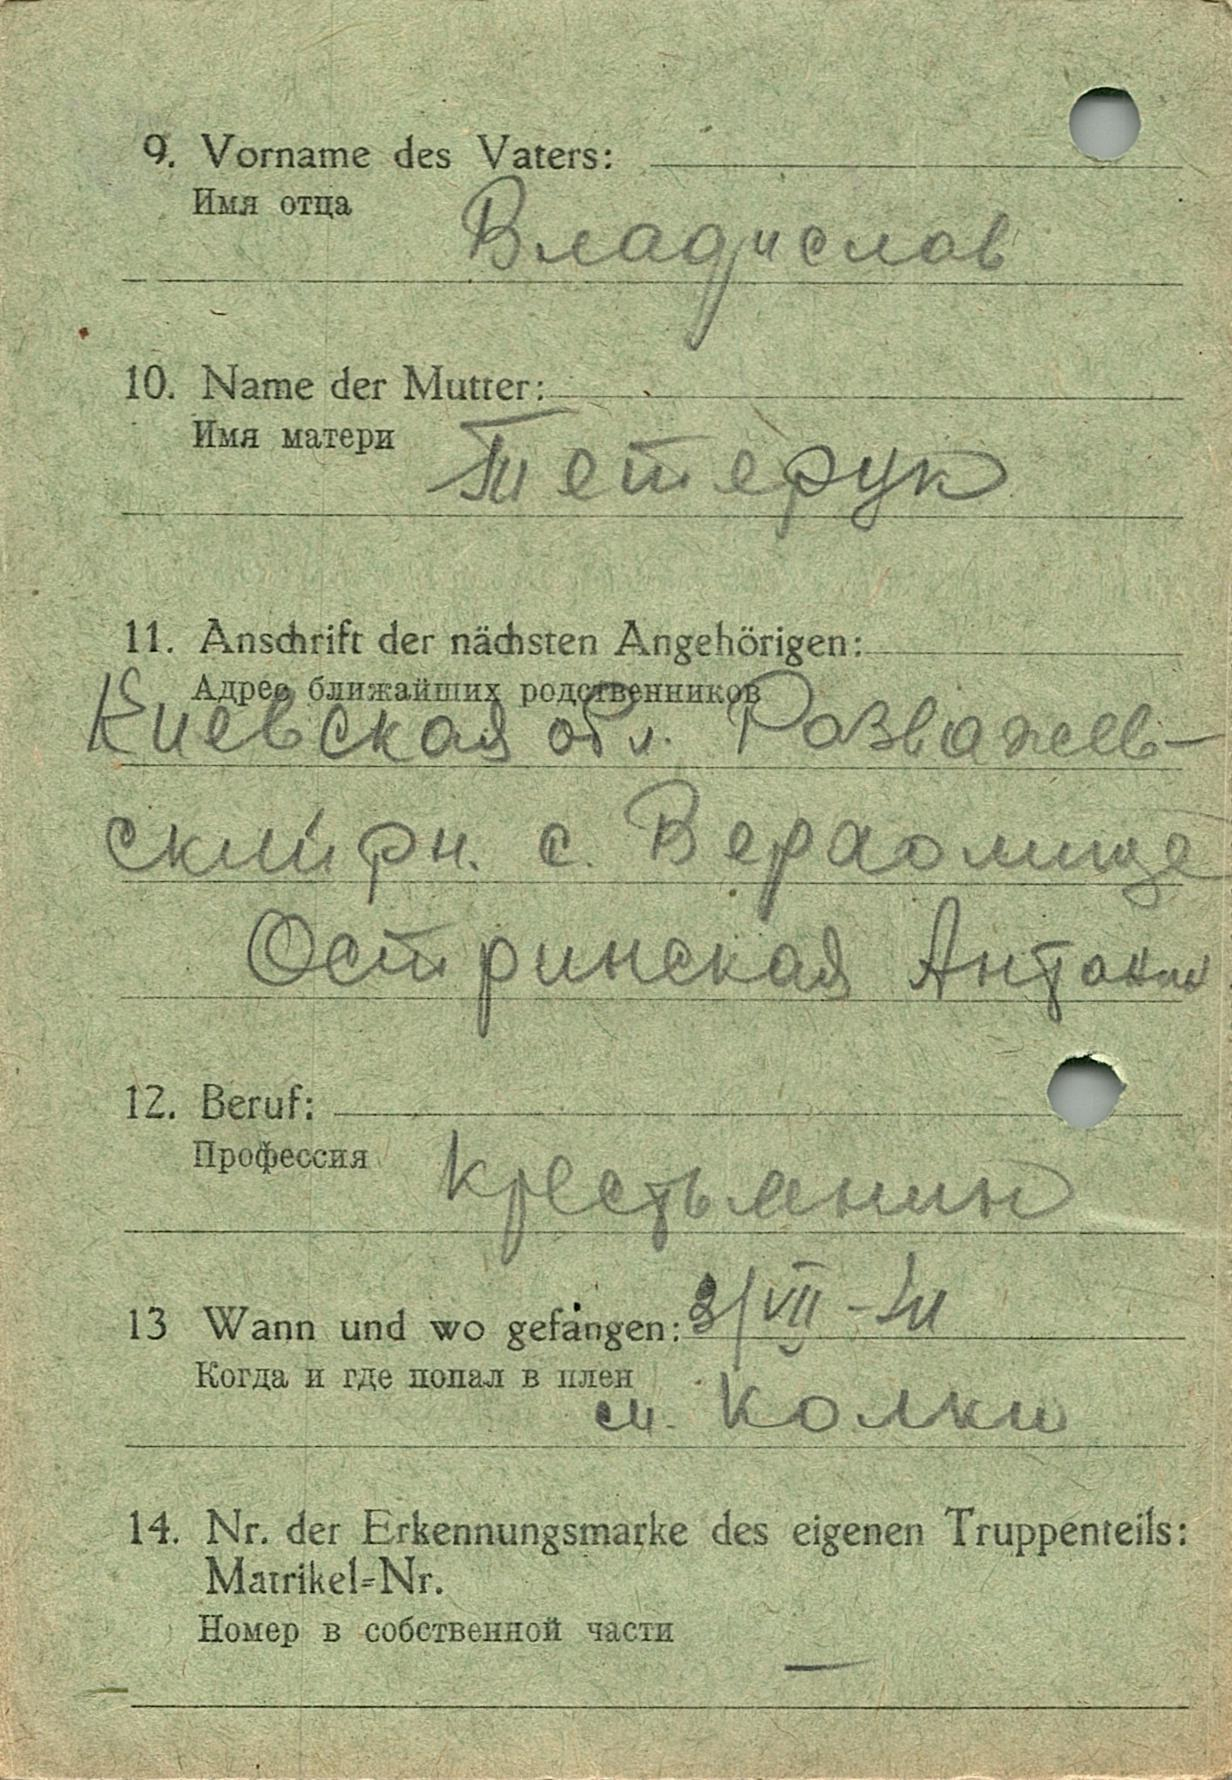 9. Vorname des Vaters:
Имя отца
Владислов
10. Name der Mutter:
Имя матери
Тетерук
11. Anschrift der nächsten Angehörigen:
Адрес ближайших родственников
Киевская обл. Розважев-
ский рн. с.
Остринская Антонин
12. Beruf:
Профессия
Крестьянин
13 Wann und wo gefangen: 3/VII-41
Когда и где попал в плен
м. Колки
14. Nr. der Erkennungsmarke des eigenen Truppenteils:
Matrikel=Nr.
Номер в собственной части
—